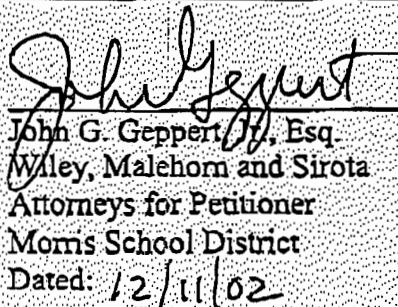 John Geppert
John G. Geppert, Jr., Esq.
Wiley, Malehorn and Sirota
Attorneys for Petitioner
Morris School District
Dated: 12/11/02